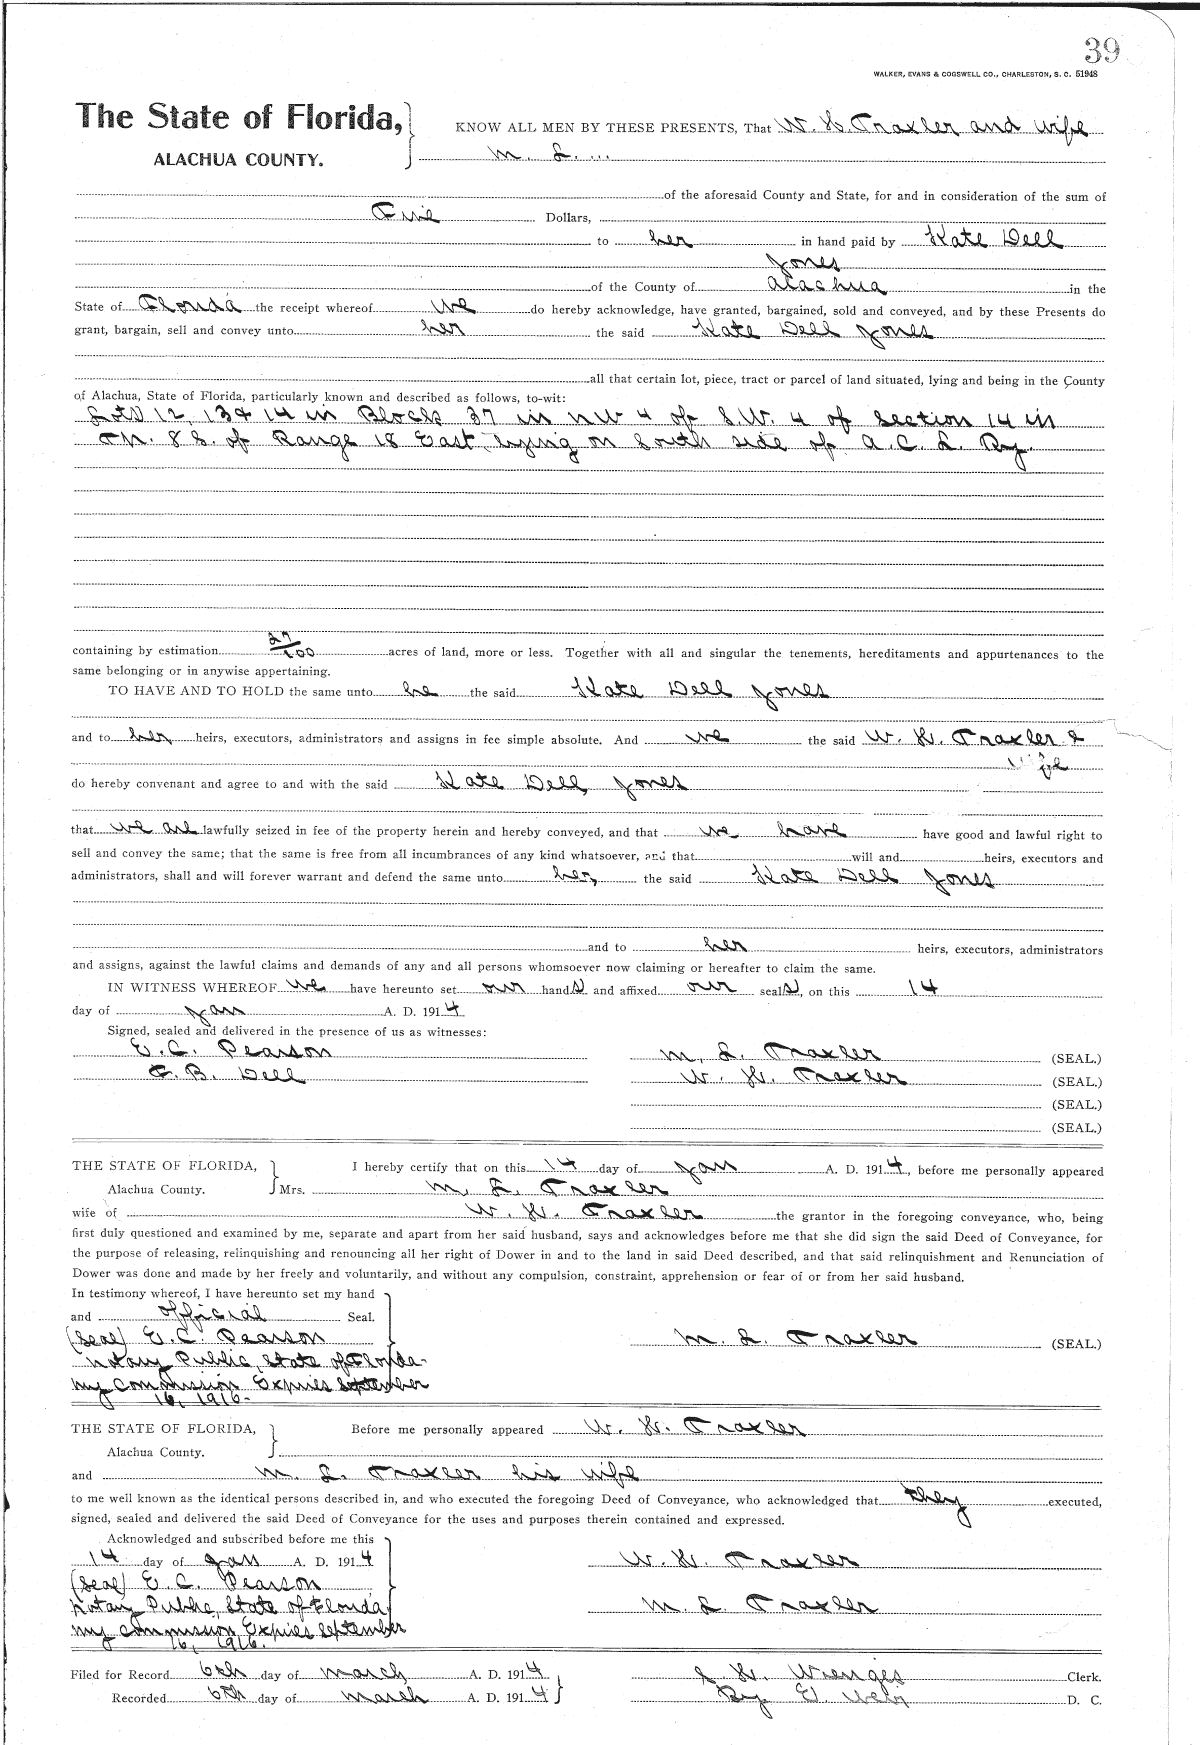 39
WALKER, EVANS & COGSWELL CO., CHARLESTON, S. C. 51948
The State of Florida,
ALACHUA COUNTY.
KNOW ALL MEN BY THESE PRESENTS, That W. H. Traxler and wife
M. L. ...
of the aforesaid County and State, for and in consideration of the sum of
Five Dollars,
to her in hand paid by Kate Dell
Jones
of the County of Alachua in the
State of Florida the receipt whereof we do hereby acknowledge, have granted, bargained, sold and conveyed, and by these Presents do
grant, bargain, sell and convey unto her the said Kate Dell Jones
all that certain lot, piece, tract or parcel of land situated, lying and being in the County
of Alachua, State of Florida, particularly known and described as follows, to-wit:
Lots 12, 13 & 14 in Block 37 in NW 4 of S.W. 4 of Section 14 in
8 S. of Range 18 East lying on South side of A. C. L. Ry.
containing by estimation 27/100 acres of land, more or less. Together with all and singular the tenements, hereditaments and appurtenances to the
same belonging or in anywise appertaining.
TO HAVE AND TO HOLD the same unto he the said Kate Dell Jones
and to her heirs, executors, administrators and assigns in fee simple absolute. And we the said W. H. Traxler &
wife
do hereby convenant and agree to and with the said Kate Dell Jones
that we are lawfully seized in fee of the property herein and hereby conveyed, and that we have have good and lawful right to
sell and convey the same; that the same is free from all incumbrances of any kind whatsoever, and that will and heirs, executors and
administrators, shall and will forever warrant and defend the same unto her, the said Kate Dell Jones
and to her heirs, executors, administrators
and assigns, against the lawful claims and demands of any and all persons whomsoever now claiming or hereafter to claim the same.
IN WITNESS WHEREOF we have hereunto set our hands and affixed our seals, on this 14
day of Jan A. D. 1914
Signed, sealed and delivered in the presence of us as witnesses:
E. C. Pearson M. L. Traxler (SEAL.)
G. B. Dell W. H. Traxler (SEAL.)
(SEAL.)
(SEAL.)
THE STATE OF FLORIDA, I hereby certify that on this 14 day of Jan A. D. 1914, before me personally appeared
Alachua County. Mrs. M. L. Traxler
wife of W. H. Traxler the grantor in the foregoing conveyance, who, being
first duly questioned and examined by me, separate and apart from her said husband, says and acknowledges before me that she did sign the said Deed of Conveyance, for
the purpose of releasing, relinquishing and renouncing all her right of Dower in and to the land in said Deed described, and that said relinquishment and Renunciation of
Dower was done and made by her freely and voluntarily, and without any compulsion, constraint, apprehension or fear of or from her said husband.
In testimony whereof, I have hereunto set my hand
and official Seal.
(Seal) E. C. Pearson M. L. Traxler (SEAL.)
Notary Public, State of Florida
my Commission Expires September
16, 1916.
THE STATE OF FLORIDA, Before me personally appeared W. H. Traxler
Alachua County.
and M. L. Traxler his wife
to me well known as the identical persons described in, and who executed the foregoing Deed of Conveyance, who acknowledged that they executed,
signed, sealed and delivered the said Deed of Conveyance for the uses and purposes therein contained and expressed.
Acknowledged and subscribed before me this
14 day of Jan A. D. 1914 W. H. Traxler
(Seal) E. C. Pearson
Notary Public, State of Florida M. L. Traxler
my Commission Expires September
16, 1916.
Filed for Record 6th day of March A. D. 1914 H. Wienges Clerk.
Recorded 6th day of March A. D. 1914 By E. Weir D. C.